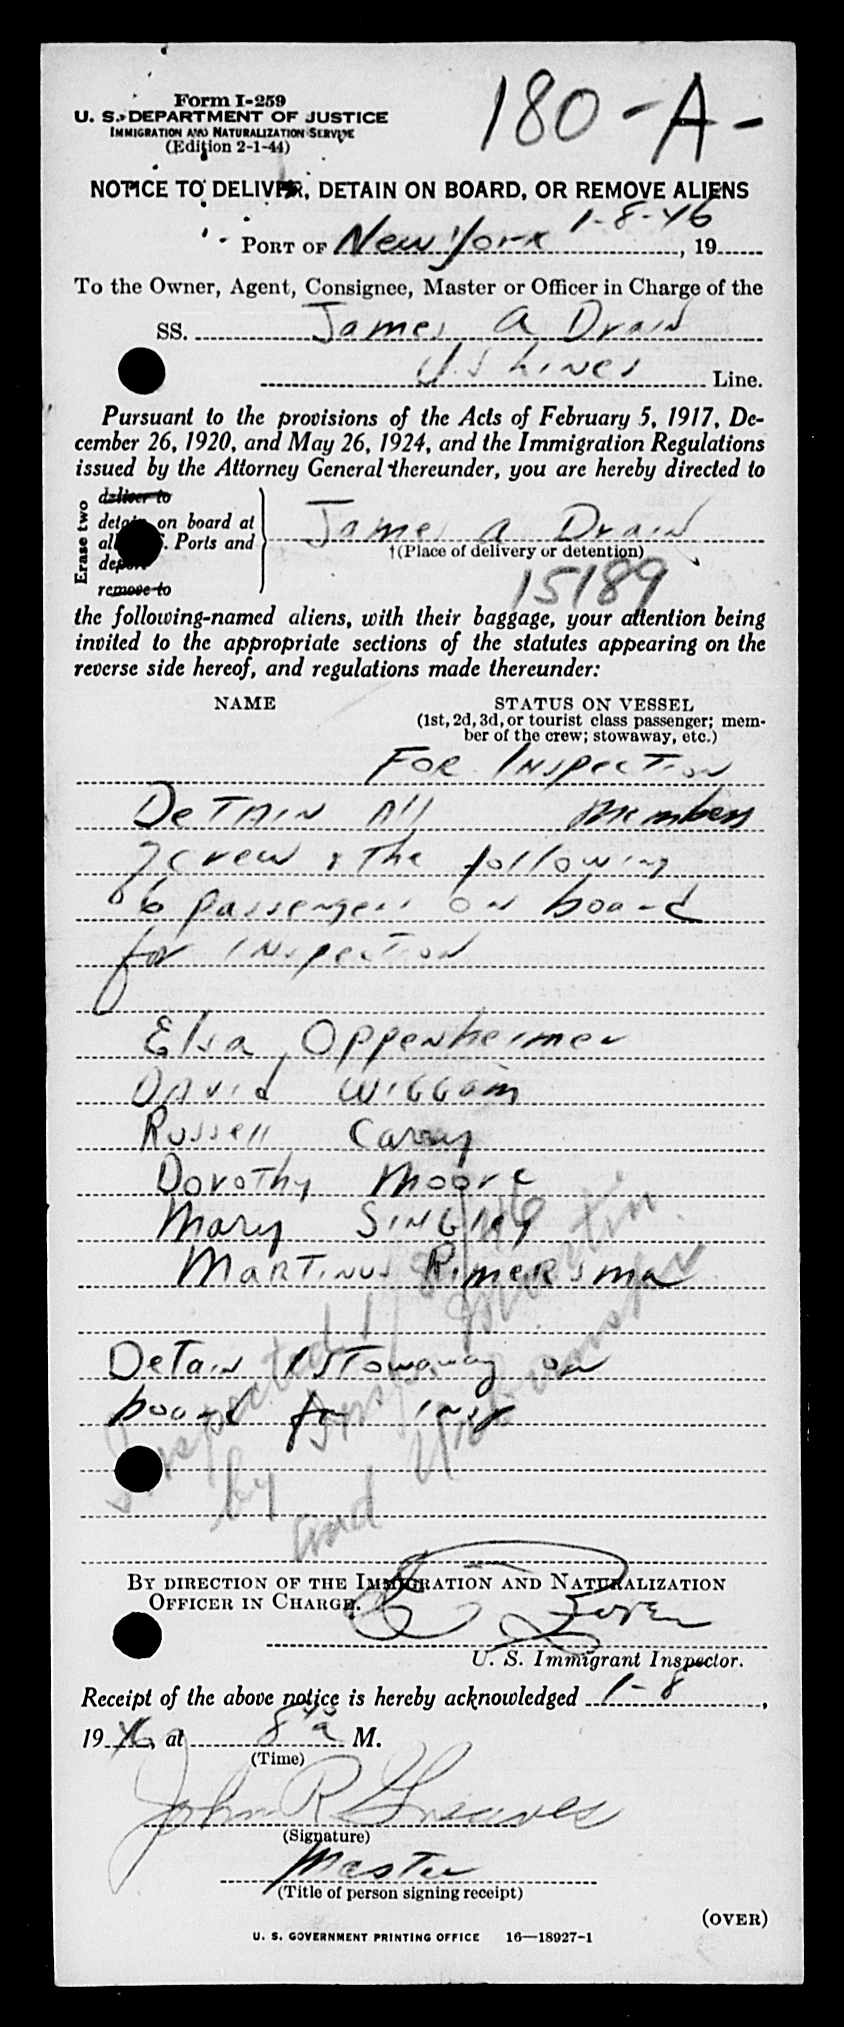 Form I-259
180-A-
U. S. DEPARTMENT OF JUSTICE
IMMIGRATION AND NATURALIZATION SERVICE
(Edition 2-1-44)
NOTICE TO DELIVER, DETAIN ON BOARD, OR REMOVE ALIENS
PORT OF New York 1-8-46, 19
To the Owner, Agent, Consignee, Master or Officer in Charge of the
SS. James A Drain
U.S Lines Line.
Pursuant to the provisions of the Acts of February 5, 1917, De-
cember 26, 1920, and May 26, 1924, and the Immigration Regulations
issued by the Attorney General thereunder, you are hereby directed to
Erase two
deliver to
detain on board at
all U. S. Ports and
deport
remove to
James A Drain
†(Place of delivery or detention)
15189
the following-named aliens, with their baggage, your attention being
invited to the appropriate sections of the statutes appearing on the
reverse side hereof, and regulations made thereunder:
NAME STATUS ON VESSEL
(1st, 2d, 3d, or tourist class passenger; mem-
ber of the crew; stowaway, etc.)
For Inspection
Detain All Members
of crew & the following
6 passengers on board
for inspection
Elsa Oppenheimer
David Wiggam
Russell Carey
Dorothy Moore
Mary Singley
Martinus Rimersma
Detain 1 stowaway on
board for insp
Inspected 1/8/46
by Insp.
and
BY DIRECTION OF THE IMMIGRATION AND NATURALIZATION
OFFICER IN CHARGE.
U. S. Immigrant Inspector.
Receipt of the above notice is hereby acknowledged 1-8,
1946, at 8 45 a M.
(Time)
John R Greaves
(Signature)
Master
(Title of person signing receipt)
(OVER)
U. S. GOVERNMENT PRINTING OFFICE 16—18927-1